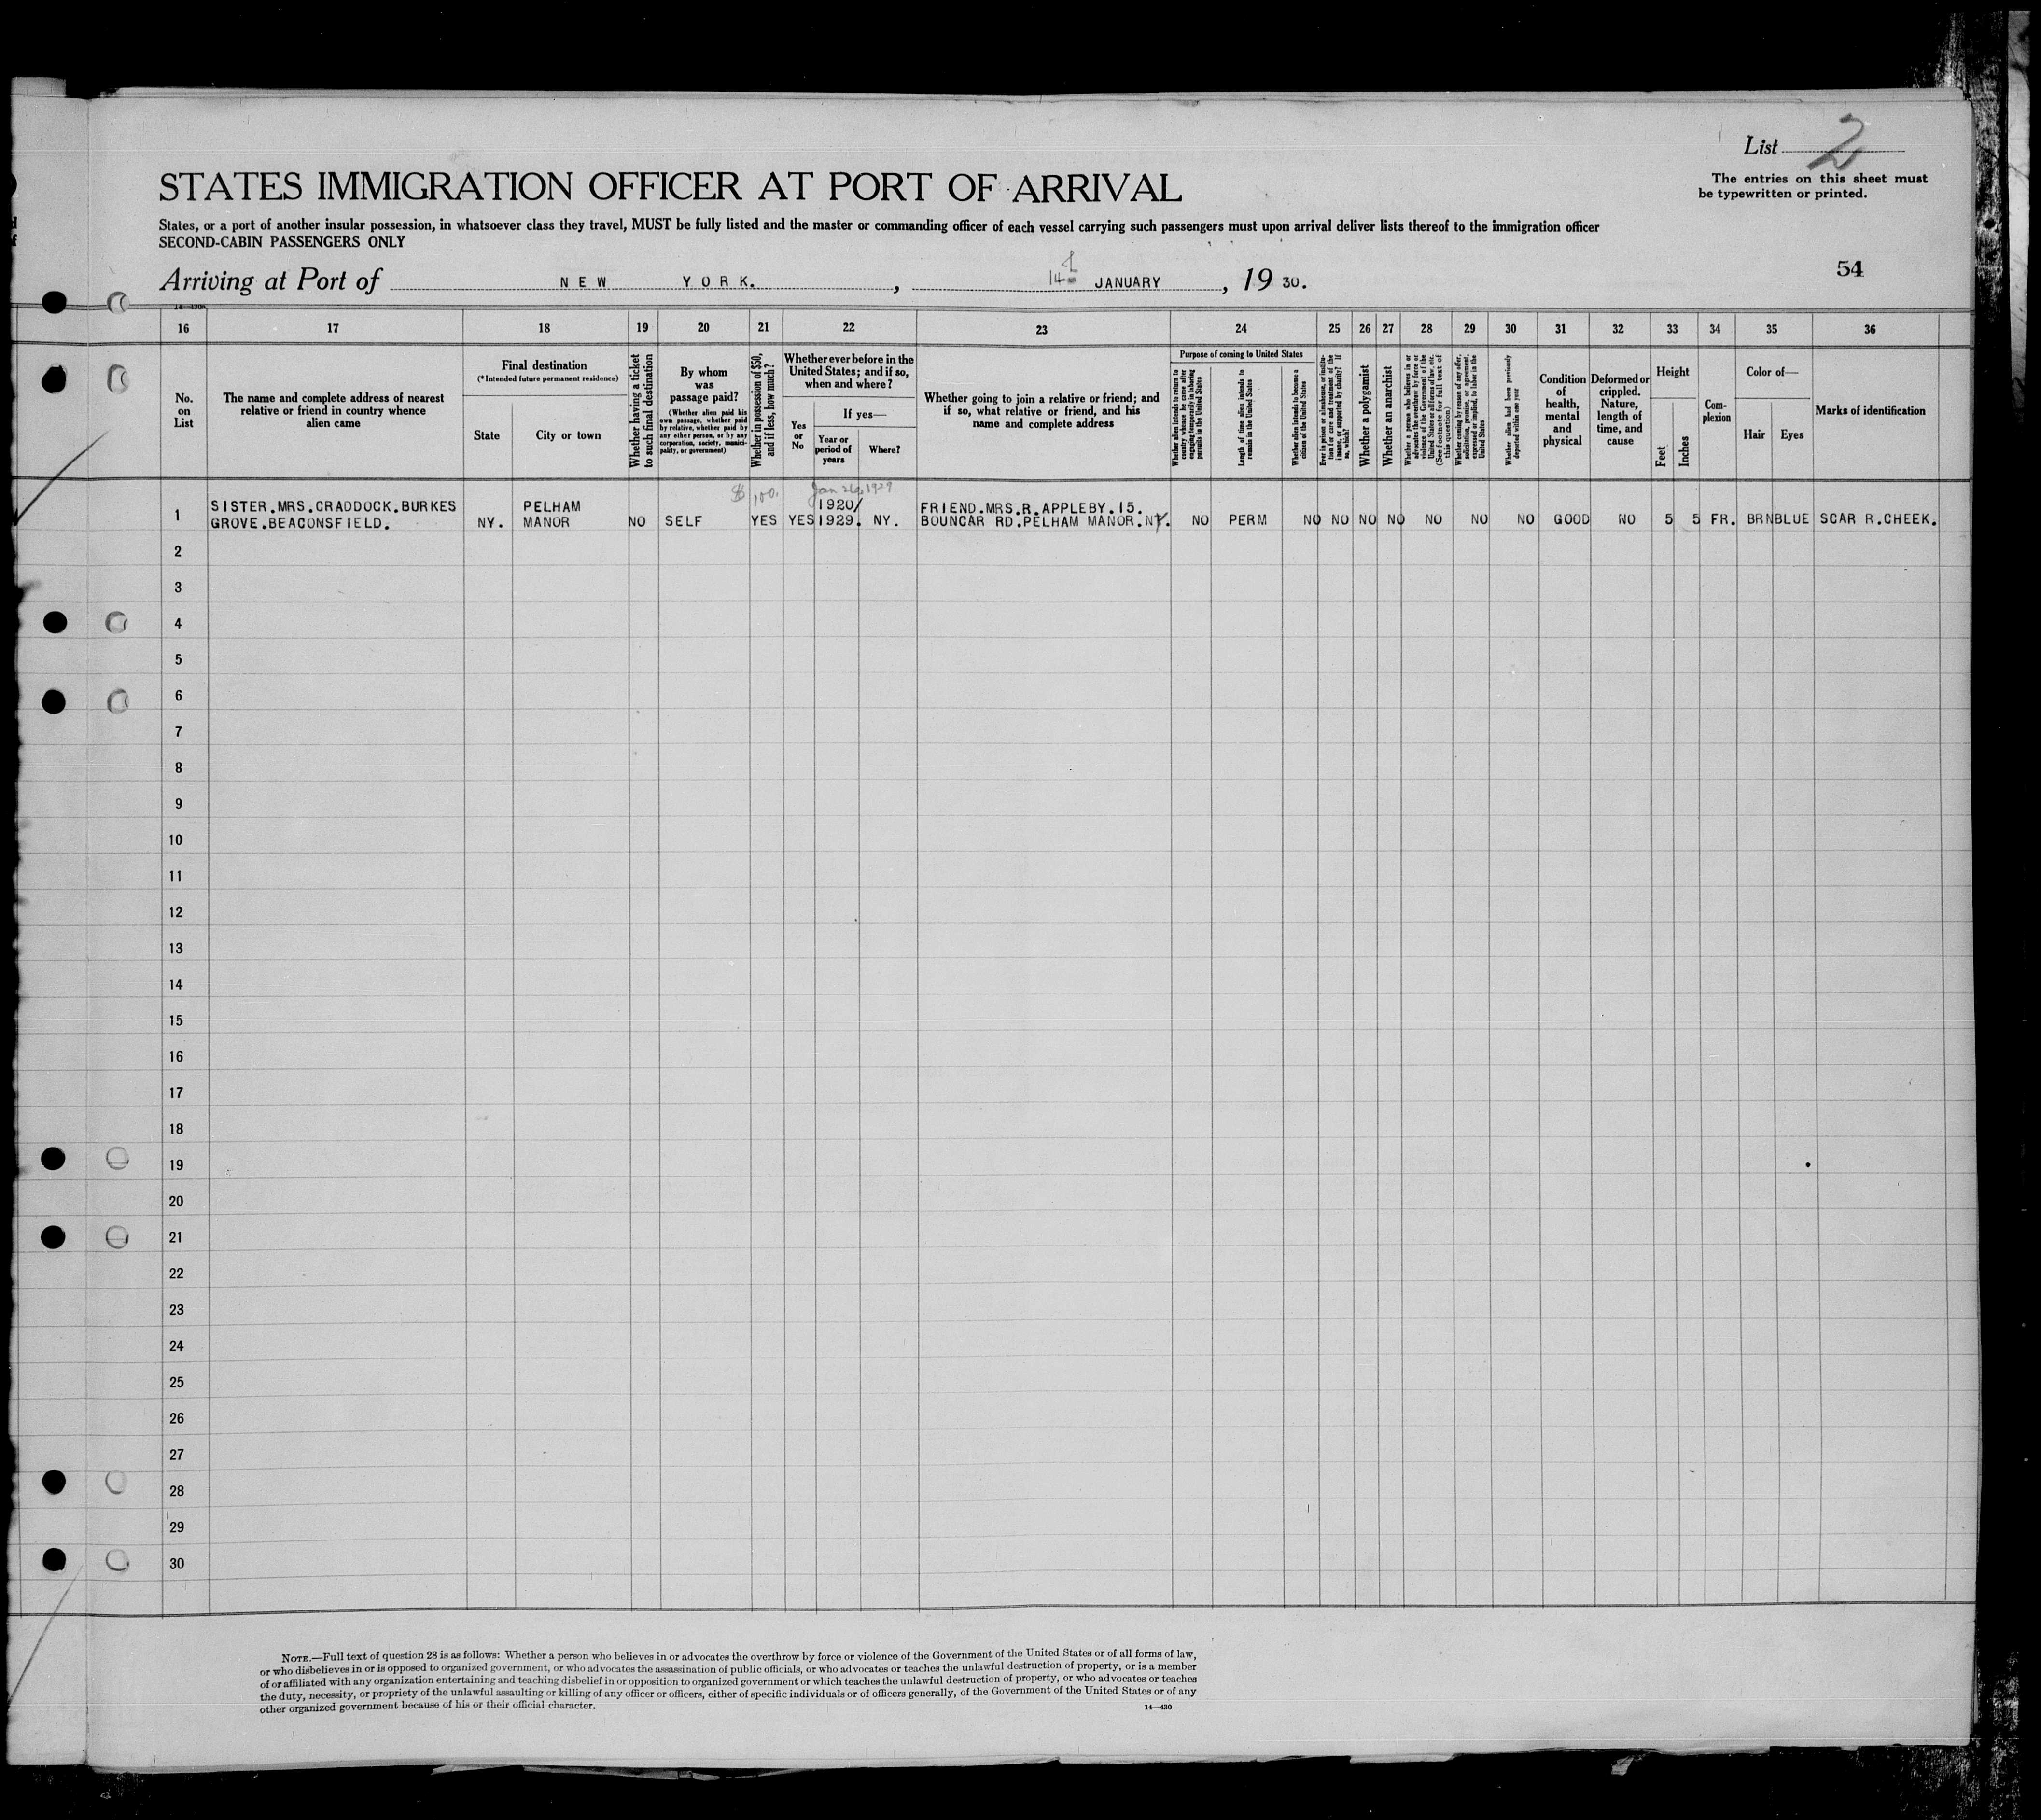 List 2
The entries on this sheet must
be typewritten or printed.
STATES IMMIGRATION OFFICER AT PORT OF ARRIVAL
States, or a port of another insular possession, in whatsoever class they travel, MUST be fully listed and the master or commanding officer of each vessel carrying such passengers must upon arrival deliver lists thereof to the immigration officer
SECOND-CABIN PASSENGERS ONLY
54
Arriving at Port of NEW YORK. , 14 JANUARY , 19 30.
16 17 18 19 20 21 22 23 24 25 26 27 28 29 30 31 32 33 34 35 36
No.
on
List
The name and complete address of nearest
relative or friend in country whence
alien came
Final destination
(*Intended future permanent residence)
State
City or town
Whether having a ticket
to such final destination
By whom
was
passage paid?
(Whether alien paid his
own passage, whether paid
by relative, whether paid by
any other person, or by any
corporation, society, munici-
pality, or government)
Whether in possession of $50,
and if less, how much?
Whether ever before in the
United States; and if so,
when and where?
Yes
or
No
If yes—
Year or
period of
years
Where?
Whether going to join a relative or friend; and
if so, what relative or friend, and his
name and complete address
Purpose of coming to United States
Whether alien intends to return to
country whence he came after
engaging temporarily in laboring
pursuits in the United States
Length of time alien intends to
remain in the United States
Whether alien intends to become a
citizen of the United States
Ever in prison or almshouse, or institu-
tion for care and treatment of the
insane, or supported by charity? If
so, which?
Whether a polygamist
Whether an anarchist
Whether a person who believes in or
advocates the overthrow by force or
violence of the Government of the
United States or all forms of law, etc.
(See footnote for full text of
this question)
Whether coming by reason of any offer,
solicitation, promise, or agreement,
expressed or implied, to labor in the
United States
Whether alien had been previously
deported within one year
Condition
of
health,
mental
and
physical
Deformed or
crippled.
Nature,
length of
time, and
cause
Height
Feet
Inches
Com-
plexion
Color of—
Hair
Eyes
Marks of identification
$ 100. Jan 1929
SISTER.MRS.CRADDOCK.BURKES PELHAM 1920/ FRIEND.MRS.R.APPLEBY.15.
1 GROVE.BEACONSFIELD. NY. MANOR NO SELF YES YES 1929. NY. BOUNCAR RD.PELHAM MANOR.NY. NO PERM NO NO NO NO NO NO NO GOOD NO 5 5 FR. BRN BLUE SCAR R.CHEEK.
2
3
4
5
6
7
8
9
10
11
12
13
14
15
16
17
18
19
20
21
22
23
24
25
26
27
28
29
30
NOTE.—Full text of question 28 is as follows: Whether a person who believes in or advocates the overthrow by force or violence of the Government of the United States or of all forms of law,
or who disbelieves in or is opposed to organized government, or who advocates the assassination of public officials, or who advocates or teaches the unlawful destruction of property, or is a member
of or affiliated with any organization entertaining and teaching disbelief in or opposition to organized government or which teaches the unlawful destruction of property, or who advocates or teaches
the duty, necessity, or propriety of the unlawful assaulting or killing of any officer or officers, either of specific individuals or of officers generally, of the Government of the United States or of any
other organized government because of his or their official character.
14—430